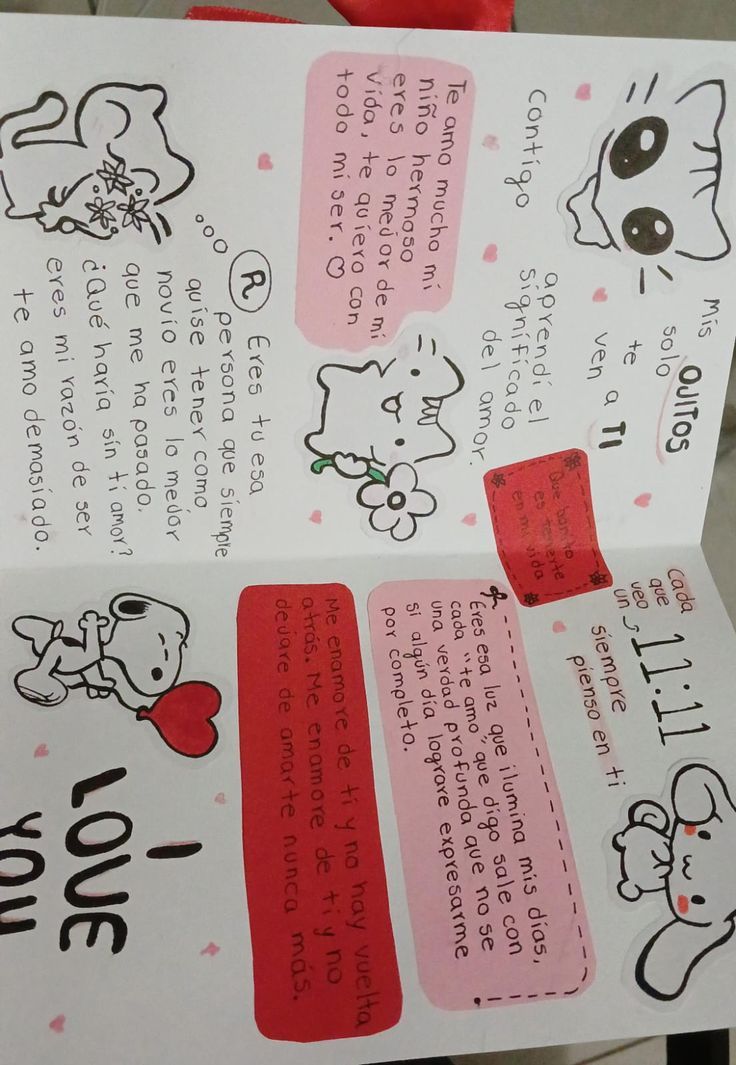 Mis OJITOS
solo
te
ven a TI
contigo
aprendí el
significado
del amor.
Te amo mucho mi
niño hermoso
eres lo mejor de mi
vida, te quiero con
todo mi ser. ♡
R
Eres tu esa
persona que siempre
quise tener como
novio eres lo mejor
que me ha pasado.
¿Qué haría sin ti amor?
eres mi razón de ser
te amo demasiado.
Que bonito
es tenerte
en mi vida
Cada
que
veo
un
11:11
siempre
pienso en ti
Eres esa luz que ilumina mis días,
cada "te amo", que digo sale con
una verdad profunda que no se
si algún día lograre expresarme
por completo.
Me enamore de ti y no hay vuelta
atrás. Me enamore de ti y no
dejare de amarte nunca más.
I
LOVE
YOU